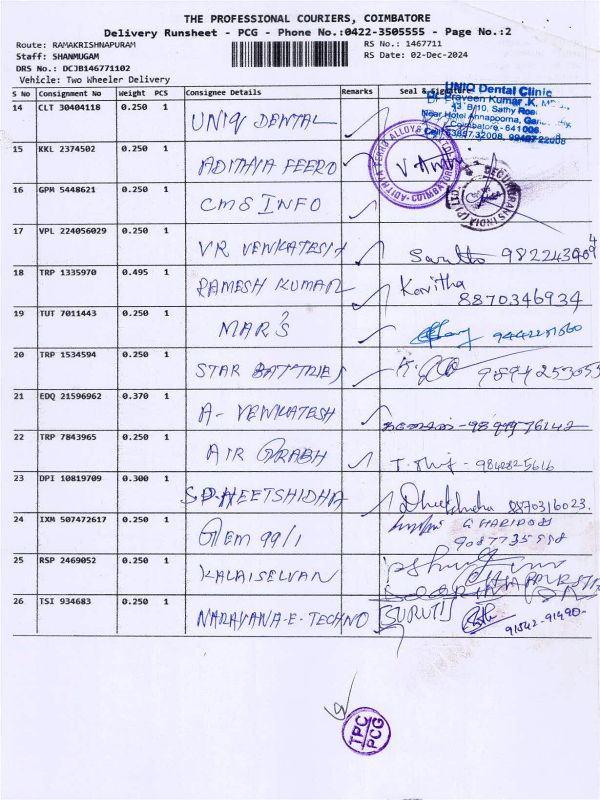 THE PROFESSIONAL COURIERS, COIMBATORE
Delivery Runsheet - PCG - Phone No.:0422-3505555 - Page No.:2
Route: RAMAKRISHNAPURAM
RS No.: 1467711
Staff: SHANMUGAM
RS Date: 02-Dec-2024
DRS No.: DCJB146771102
Vehicle: Two Wheeler Delivery
S No Consignment No Weight PCS Consignee Details Remarks Seal & Signature
UNIQ Dental Clinic
Dr Praveen Kumar .K,
13 B/10, Sathy Road
Near Hotel Annapoorna,
Coimbatore - 641006.
14 CLT 30404118 0.250 1 UNIQ DENTAL
15 KKL 2374502 0.250 1 ADITHYA FEERO
ADITHYA FERRO ALLOYS COIMBATORE
16 GPM 5448621 0.250 1 CMS INFO
INDIA (P) LTD.
17 VPL 224056029 0.250 1 VR VENKATESH
18 TRP 1335970 0.495 1 RAMESH KUMAR Kavitha
8870346934
19 TUT 7011443 0.250 1 MAR'S
20 TRP 1534594 0.250 1 STAR BATTRIES 9894253055
21 EDQ 21596962 0.370 1 A- VENKATESH
22 TRP 7843965 0.250 1 AIR GRABH 9842825616
23 DPI 10819709 0.300 1 SP. HEETSHIDHA 8870316023.
24 IXM 507472617 0.250 1 GEM 99/1 G HARIDOSS
25 RSP 2469052 0.250 1 KALAISELVAN
26 TSI 934683 0.250 1 NARAYANA-E-TECHNO [SURUTI] 91542-91490-
TPC
PCG